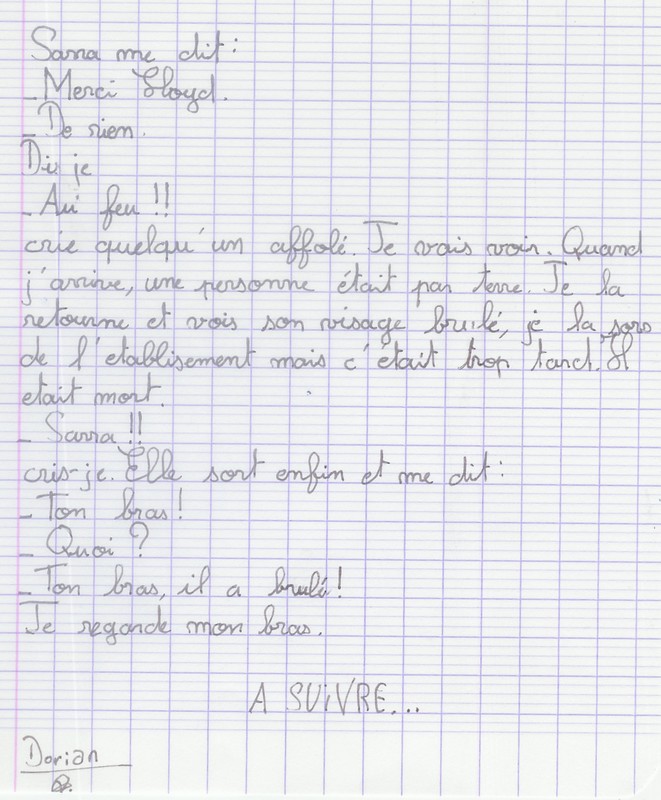 Sarra me dit :
_ Merci Lloyd.
_ De rien.
Di je
_ Au feu !!
crie quelqu'un affolé. Je vais voir. Quand
j'arrive, une personne était par terre. Je la
retourne et vois son visage brulé, je la sors
de l'etablisement mais c'était trop tard. Il
etait mort.
_ Sarra !!
cris-je. Elle sort enfin et me dit :
_ Ton bras !
_ Quoi ?
_ Ton bras, il a brulé !
Je regarde mon bras.
A SUiVRE...
Dorian